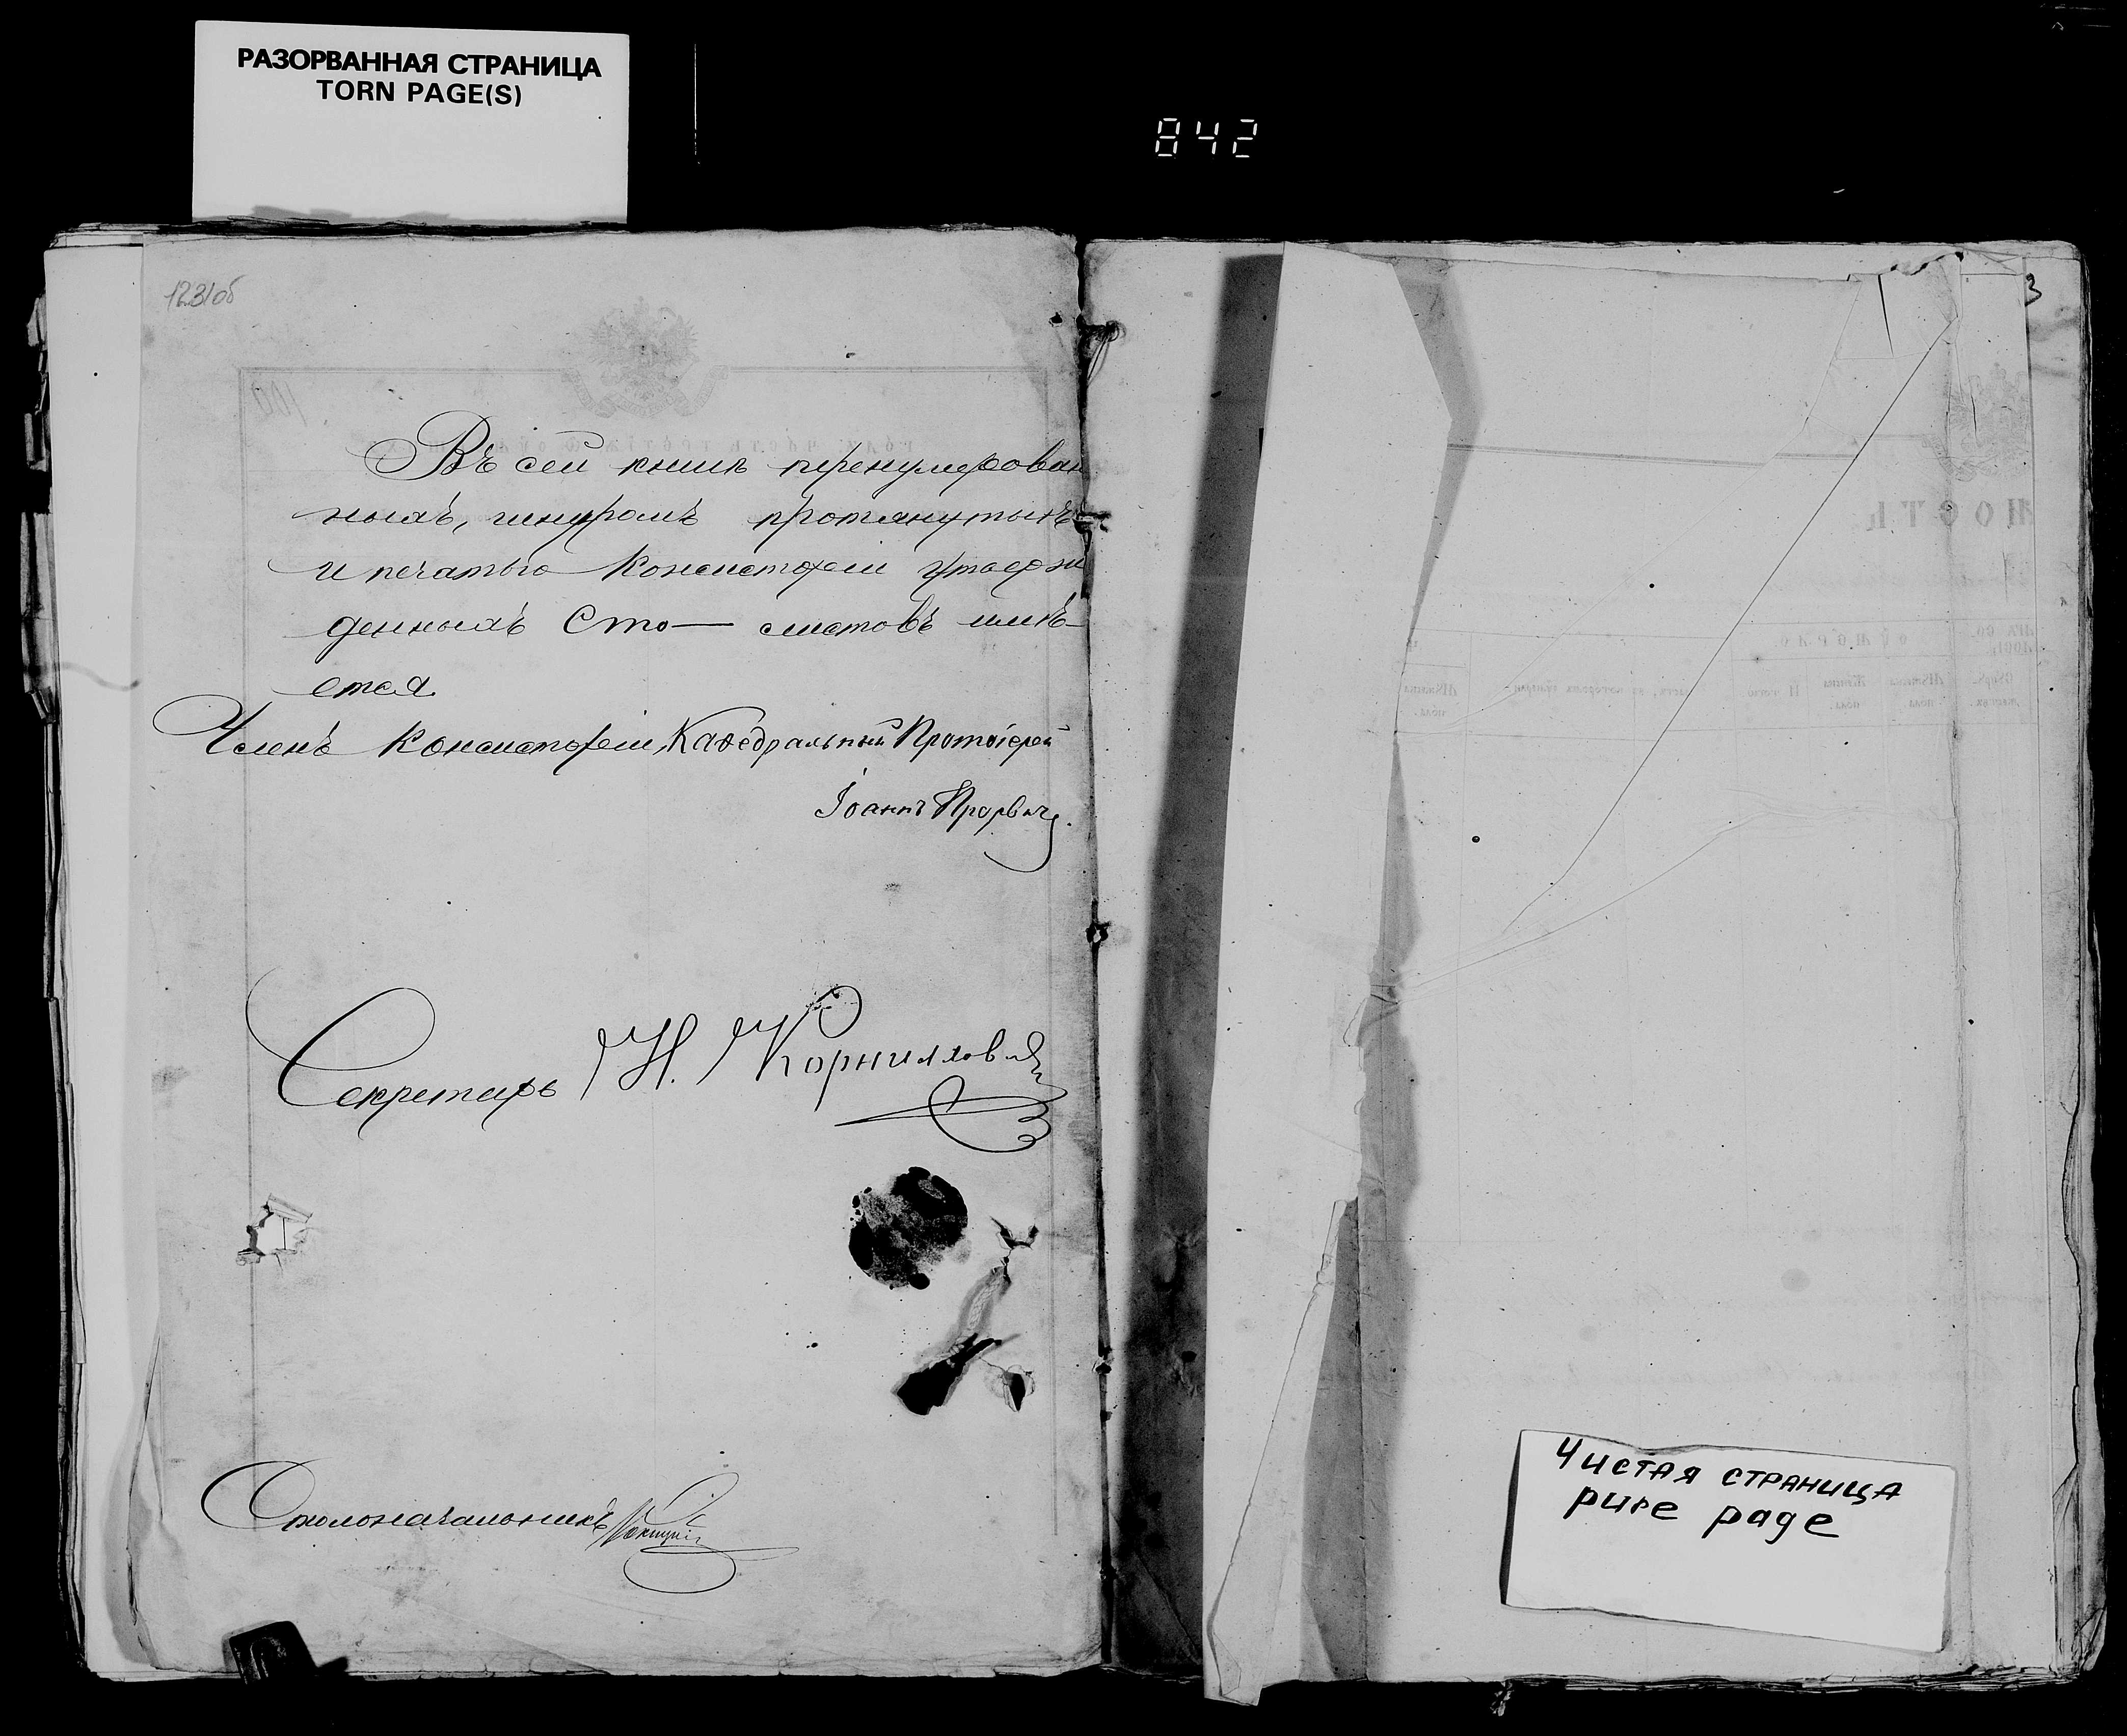 РАЗОРВАННАЯ СТРАНИЦА
TORN PAGE(S)
842
123/об
100
Въ сей книгѣ перенумерован
ныхъ, шнуромъ протянутыхъ
и печатью Консисторіи утверж
денныхъ Сто — листовъ имѣ-
ется
Членъ Консисторіи, Каѳедральный Протоіерей
Іоаннъ
Секретарь Н. Корниллов
Столоначальникъ
3
НОСТЬ
Чистая страница
pure page